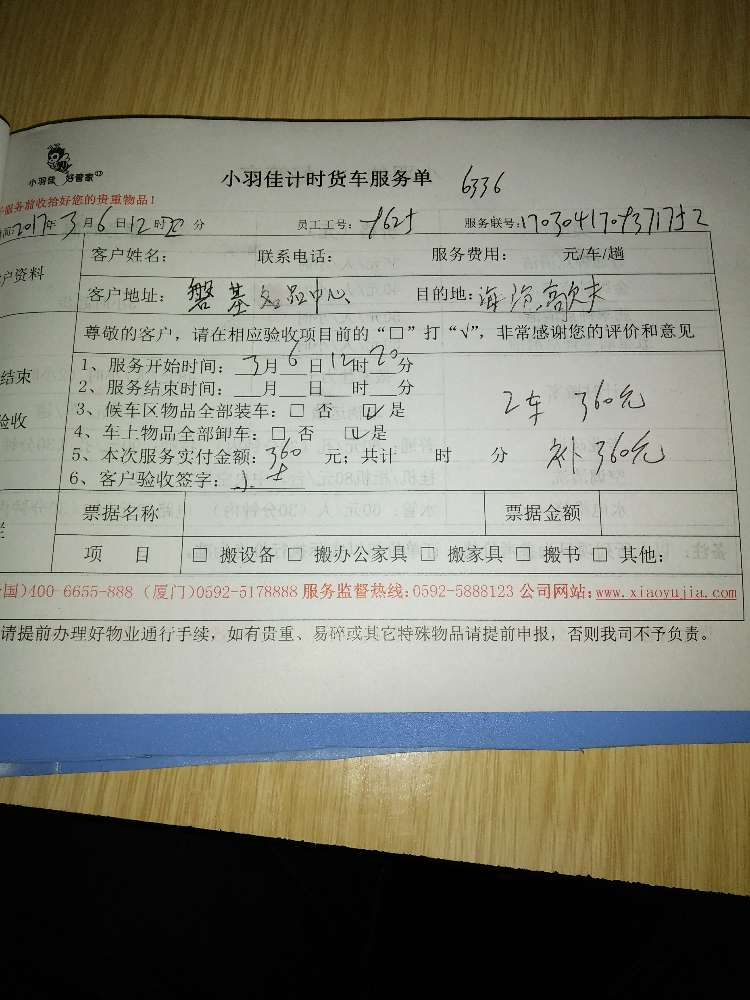 小羽佳 好管家
小羽佳计时货车服务单 6336
服务前收拾好您的贵重物品!
间:2017年3月6日12时20分 员工工号: 服务联号:
户资料 客户姓名: 联系电话: 服务费用: 元/车/趟
客户地址: 磐基 中心 目的地:
尊敬的客户，请在相应验收项目前的“□”打“√”，非常感谢您的评价和意见
结束
验收
1、服务开始时间: 3月6日12时20分
2、服务结束时间: 月 日 时 分
3、候车区物品全部装车: □ 否 ☑是 2车 360元
4、车上物品全部卸车: □ 否 ☑是
5、本次服务实付金额: 360 元; 共计 时 分 补360元
6、客户验收签字:
票据名称 票据金额
项 目 □ 搬设备 □ 搬办公家具 □ 搬家具 □ 搬书 □ 其他:
国)400-6655-888 (厦门)0592-5178888 服务监督热线:0592-5888123 公司网站:www.xiaoyujia.com
请提前办理好物业通行手续，如有贵重、易碎或其它特殊物品请提前申报，否则我司不予负责。